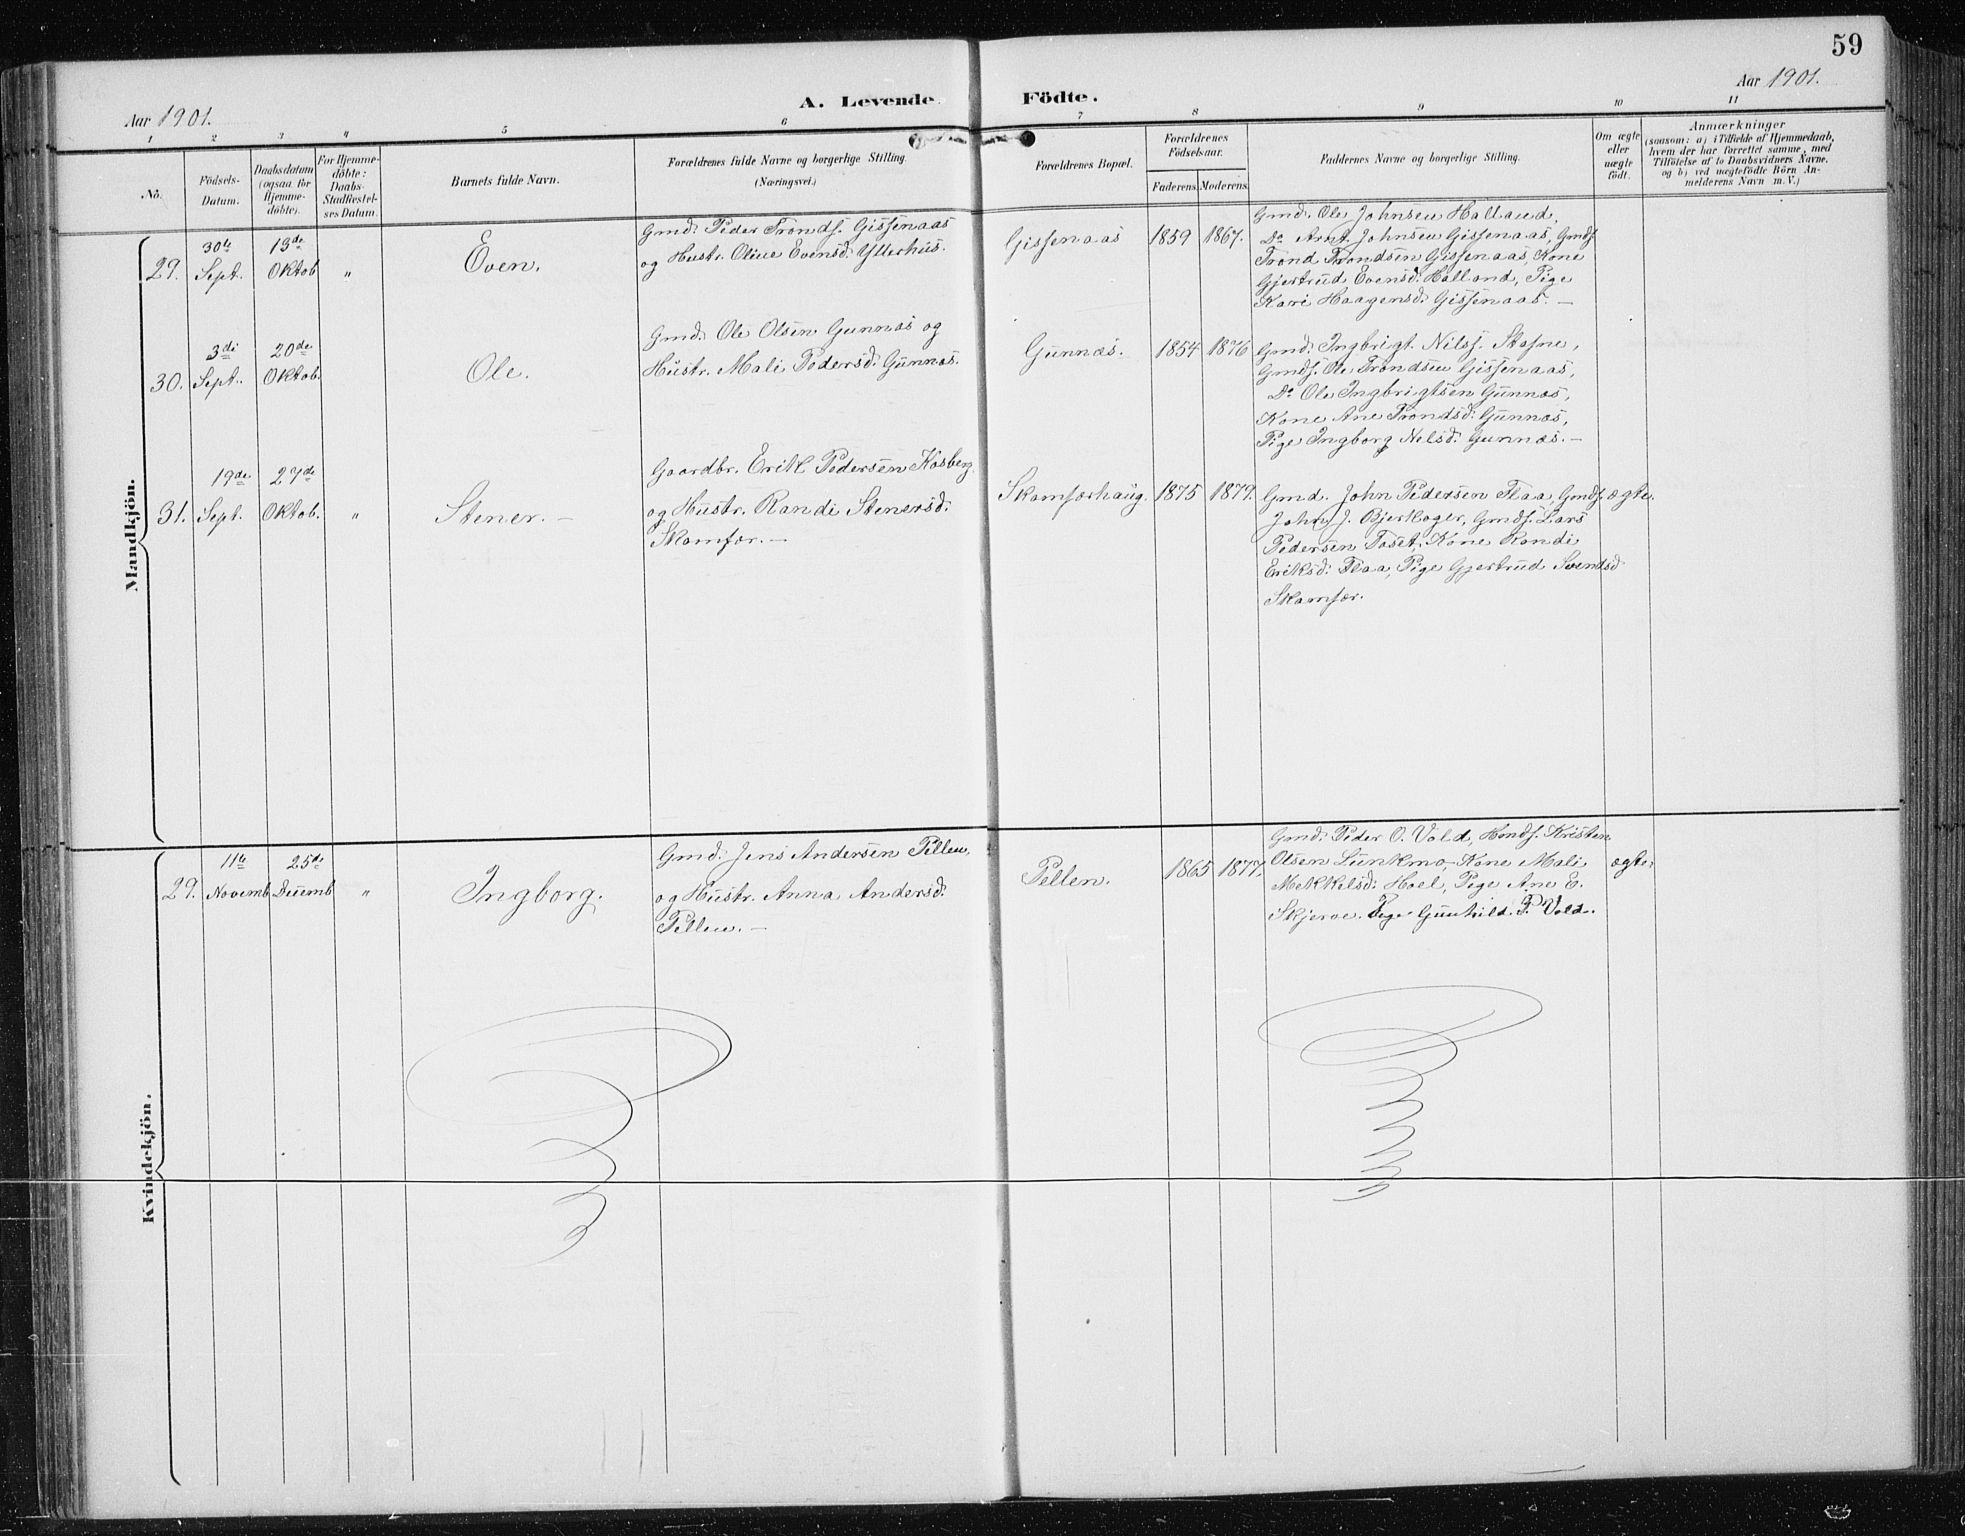 59
Aar 1901.
A. Levende Födte.
Aar 1901.
1 2 3 4 5 6 7 8 9 10 11
No.
Födsels-
Datum.
Daabsdatum
(ogsaa for
Hjemme-
döbte).
For Hjemme-
döbte:
Daabs-
Stadfæstel-
ses Datum.
Barnets fulde Navn.
Forældrenes fulde Navne og borgerlige Stilling.
(Næringsvei.)
Forældrenes Bopæl.
Forældrenes
Födselsaar.
Faderens. Moderens.
Faddernes Navne og borgerlige Stilling.
Om ægte
eller
uægte
født.
Anmærkninger
(saasom: a) i Tilfælde af Hjemmedaab,
hvem der har forrettet samme, med
Tilføielse af to Daabsvidners Navne.
og b) ved uægtefödte Börn An-
melderens Navn m. V.)
Mandkjön.
29.
30te
Sept.
13de
Oktob
"
Even.
Gmd. Peder Trondf. Gissenaas
og Hustr. Oline Evensd. Ytterhus.
Gissenaas
1859 1867.
Gmd. Ole Johnsen Halland,
Do Arnt Johnsen Gissenaas, Gmdf.
Trond Trondsen Gissenaas, Kone
Gjertrud Evensd. Halland, Pige
Kari Haagensd. Gissenaas. —
30.
3di
Sept.
20de
Oktob.
Ole.
Gmd. Ole Olsen Gunnæs og
Hustr. Mali Pedersd. Gunnæs.
Gunnæs.
1854 1876
Gmd. Ingbrigt Nilsf. Stafne,
Gmdf. Ole Trondsen Gissenaas,
Do Ole Ingbrigtsen Gunnæs,
Kone Ane Trondsd. Gunnæs,
Pige Ingborg Nilsd. Gunnæs. —
31.
19de
Sept.
27de
Oktob.
"
Stener. —
Gaardbr. Erik Pedersen Kosberg
og Hustr. Randi Stenersd.
Skamfær. —
Skamfærhaug.
1875 1879.
Gmd. John Pedersen Flaa, Gmdf.
John J. Bjerkager, Gmdf. Lars
Pedersen Toset, Kone Randi
Eriksd. Flaa, Pige Gjertrud Svendsd
Skamfær.
ægte.
Kvindekjön.
29.
11te
Novemb
25de
Decemb
"
Ingborg.
Gmd. Jens Andersen Pellen,
og Hustr. Anna Andersd.
Pellen. —
Pellen.
1865 1877.
Gmd. Peder O. Vold, Handf. Kristen
Olsen Lunkmo, Kone Mali
Mekkelsd. Hoel, Pige Ane E.
Skjerve. Pige Gunhild. P. Vold.
ægte.